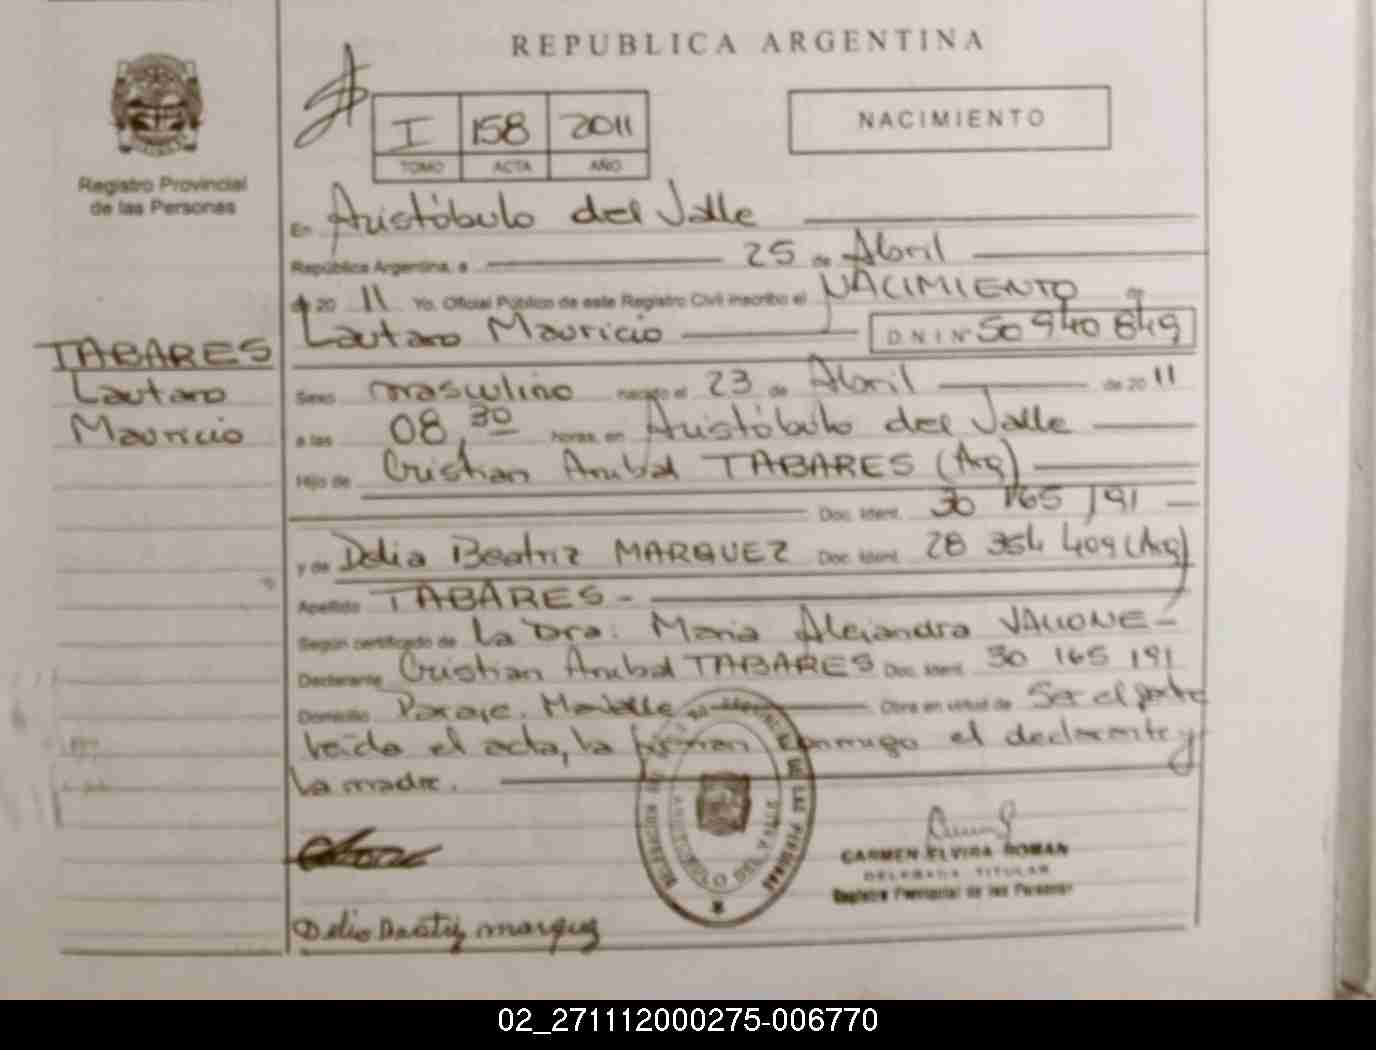 REPUBLICA ARGENTINA
Registro Provincial
de las Personas
I 158 2011
TOMO ACTA AÑO
NACIMIENTO
En Aristóbulo del Valle
República Argentina, a 25 de Abril
de 20 11 Yo, Oficial Público de este Registro Civil inscribo el NACIMIENTO de
Lautaro Mauricio DNI Nº 50 940 849
TABARES
Lautaro
Mauricio
Sexo masculino nacido el 23 de Abril de 20 11
a las 08,30 horas, en Aristóbulo del Valle
Hijo de Cristian Anibal TABARES (Arg)
Doc. Ident. 30 165 191
y de Delia Beatriz MARQUEZ Doc. Ident. 28 354 409 (Arg)
Apellido TABARES
Según certificado de La Dra. Maria Alejandra
Declarante Cristian Anibal TABARES Doc. Ident. 30 165 191
Domicilio Paraje Obra en virtud de Ser el padre
leída el acta, la firman conmigo el declarante y
la madre.
REGISTRO PROVINCIAL DE LAS PERSONAS
ARISTOBULO DEL VALLE
CARMEN ELVIRA ROMAN
DELEGADA TITULAR
Registro Provincial de las Personas
Delia Beatriz marquez
02_271112000275-006770